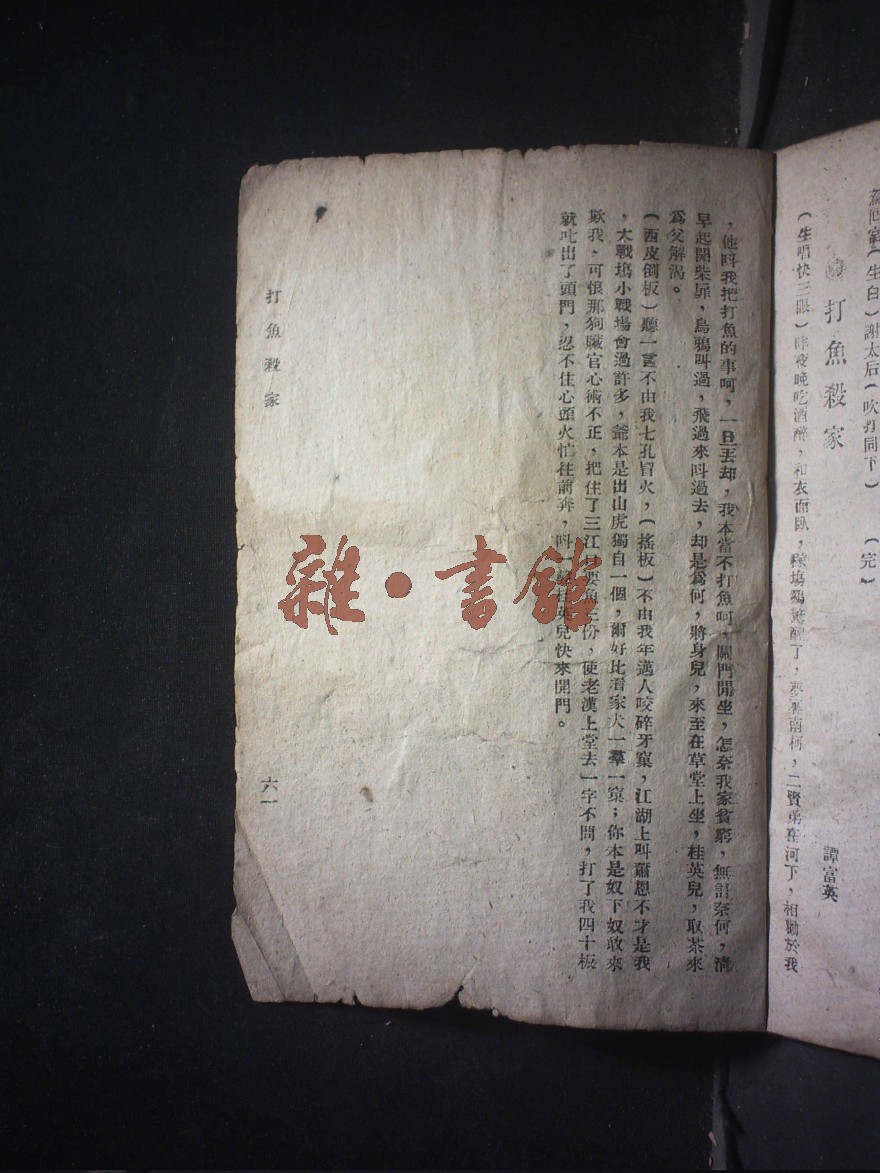 蕩回宮（生白）謝太后（吹打同下）　（完）
打魚殺家　譚富英
（生唱快三眼）昨夜晚吃酒醉，和衣而臥，稼場鷄驚醒了，夢裏南柯，二賢弟在河下，相勸於我
，他呌我把打魚的事呵，一旦丟却，我本當不打魚呵，關門閒坐，怎奈我家貧窮，無計奈何，清
早起開柴扉，烏鴉叫過，飛過來呌過去，却是爲何，將身兒，來至在草堂上坐，桂英兒，取茶來
爲父解渴。
（西皮倒板）聽一言不由我七孔冒火，（搖板）不由我年邁人咬碎牙窠，江湖上叫蕭恩不才是我
，大戰塲小戰場會過許多，爺本是出山虎獨自一個，爾好比看家犬一羣一窠；你本是奴下奴敢來
欺我，可恨那狗臟官心術不正，把住了三江口要魚三份，使老漢上堂去一字不問，打了我四十板
就叱出了頭門，忍不住心頭火忙往前奔，呌一聲桂英兒快來開門。
打魚殺家
六一
雜·書館